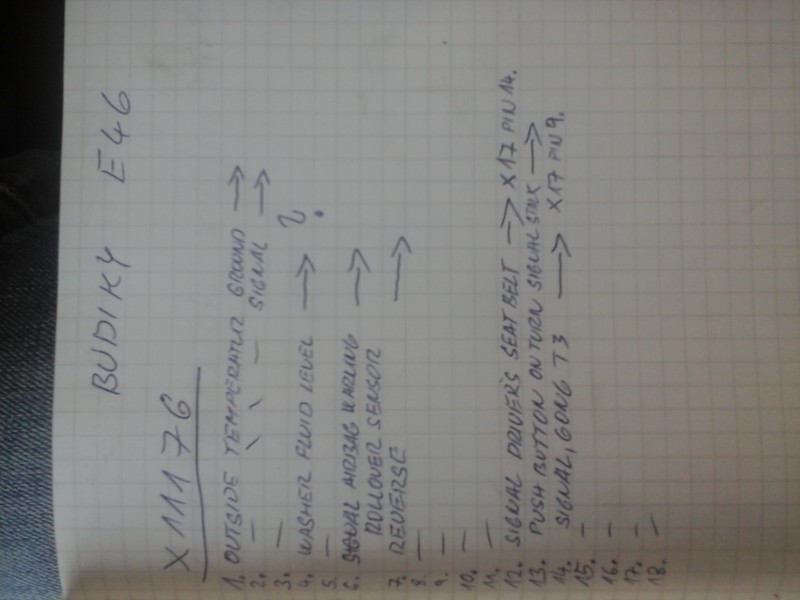 BUDIKY E46
X11176
1. OUTSIDE TEMPERATUR GROUND →
2. — \ \ — SIGNAL →
3. —
4. WASHER FLUID LEVEL → ?
5. —
6. SIGNAL AIRBAG WARNING
ROLLOVER SENSOR →
7. REVERSE →
8. —
9. —
10. —
11. —
12. SIGNAL DRIVER'S SEAT BELT → X17 PIN 14.
13. PUSH BUTTON ON TURN SIGNAL STALK →
14. SIGNAL, GONG T3 → X17 PIN 9.
15. —
16. —
17. —
18. —